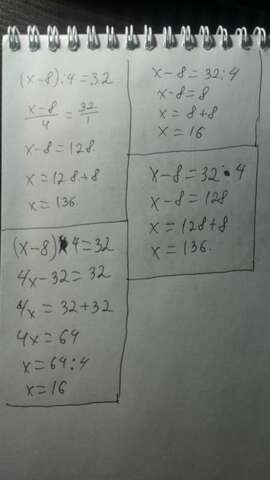 (x-8):4=32
x-8/4 = 32/1
x-8=128.
x=128+8
x=136.
(x-8) 4=32
4x-32=32
4x=32+32
4x=64
x=64:4
x=16
x-8=32:4
x-8=8
x=8+8
x=16
x-8=32·4
x-8=128
x=128+8
x=136.